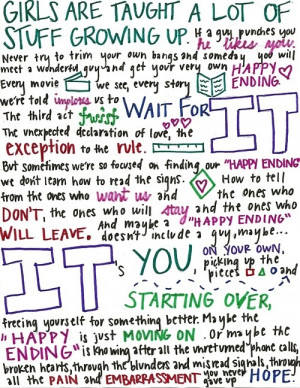 GIRLS ARE TAUGHT A LOT OF
STUFF GROWING UP. If a guy punches you
he likes you.
Never try to trim your own bangs and someday you will
meet a wonderful guy and get your very own HAPPY
ENDING.
Every movie we see, every story
we're told implores us to WAIT FOR IT
The third act twist
The unexpected declaration of love, the
exception to the rule.
But sometimes we're so focused on finding our "HAPPY ENDING"
we don't learn how to read the signs. How to tell
from the ones who want us and the ones who
DON'T, the ones who will stay and the ones who
WILL LEAVE. And maybe a "HAPPY ENDING"
doesn't include a guy, maybe...
IT's YOU, ON YOUR OWN,
picking up the
pieces and
STARTING OVER,
freeing yourself for something better. Maybe the
"HAPPY is just MOVING ON. Or maybe the
ENDING" is knowing after all the unreturned phone calls,
broken hearts, through the blunders and misread signals, through
all the PAIN and EMBARRASSMENT you never gave up HOPE!